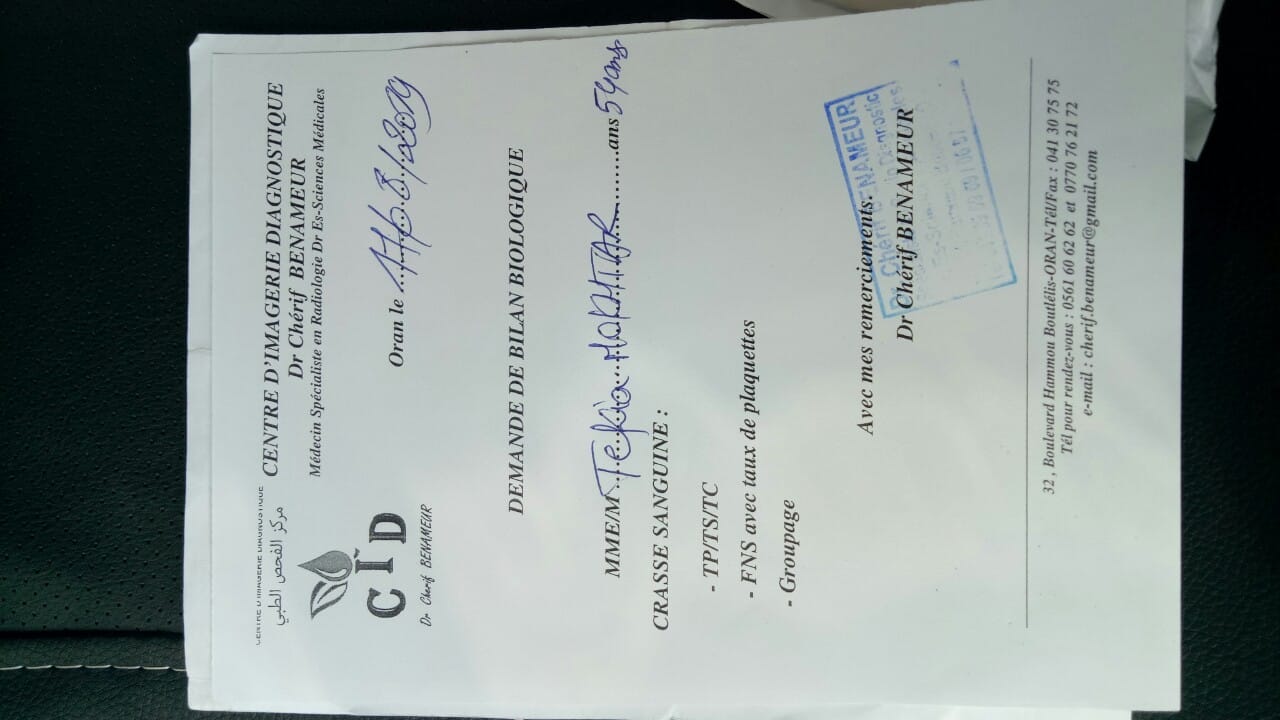 CENTRE D'IMAGERIE DIAGNOSTIQUE
مركز الفحص الطبي
CID
Dr Cherif BENAMEUR
CENTRE D'IMAGERIE DIAGNOSTIQUE
Dr Chérif BENAMEUR
Médecin Spécialiste en Radiologie Dr Es-Sciences Médicales
Oran le
DEMANDE DE BILAN BIOLOGIQUE
MME/M MOKHTAR ans 54 ans
CRASSE SANGUINE :
- TP/TS/TC
- FNS avec taux de plaquettes
- Groupage
Avec mes remerciements.
Dr Chérif BENAMEUR
Dr Cherif BENAMEUR
32 , Boulevard Hammou Boutlélis-ORAN-Tél/Fax : 041 30 75 75
Tél pour rendez-vous : 0561 60 62 62 et 0770 76 21 72
e-mail : cherif.benameur@gmail.com